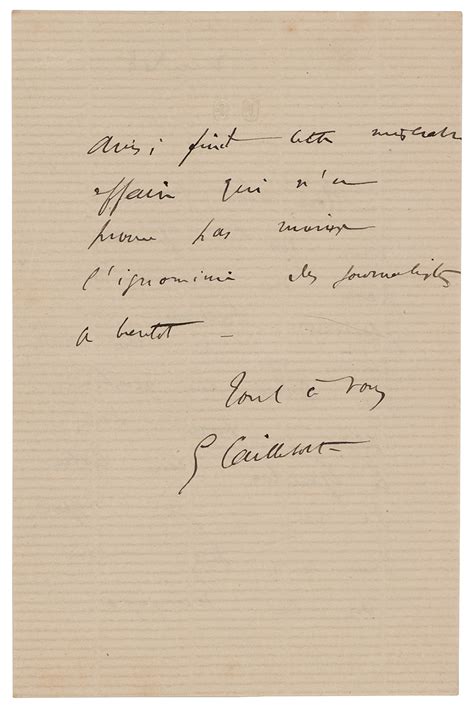 Ainsi finit cette misérable
affaire qui n'en
prouve pas moins
l'ignominie des journalistes
a bientot –
Tout à vous
G Caillebotte